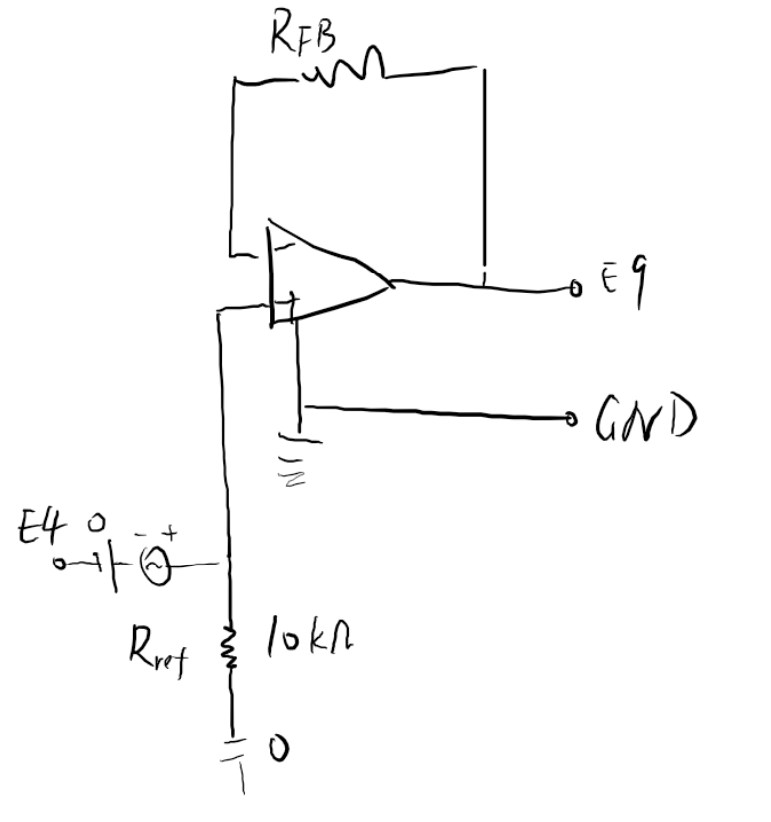 R_FB
−
+
E9
GND
E4 0
- +
~
R_ref 10kΩ
0